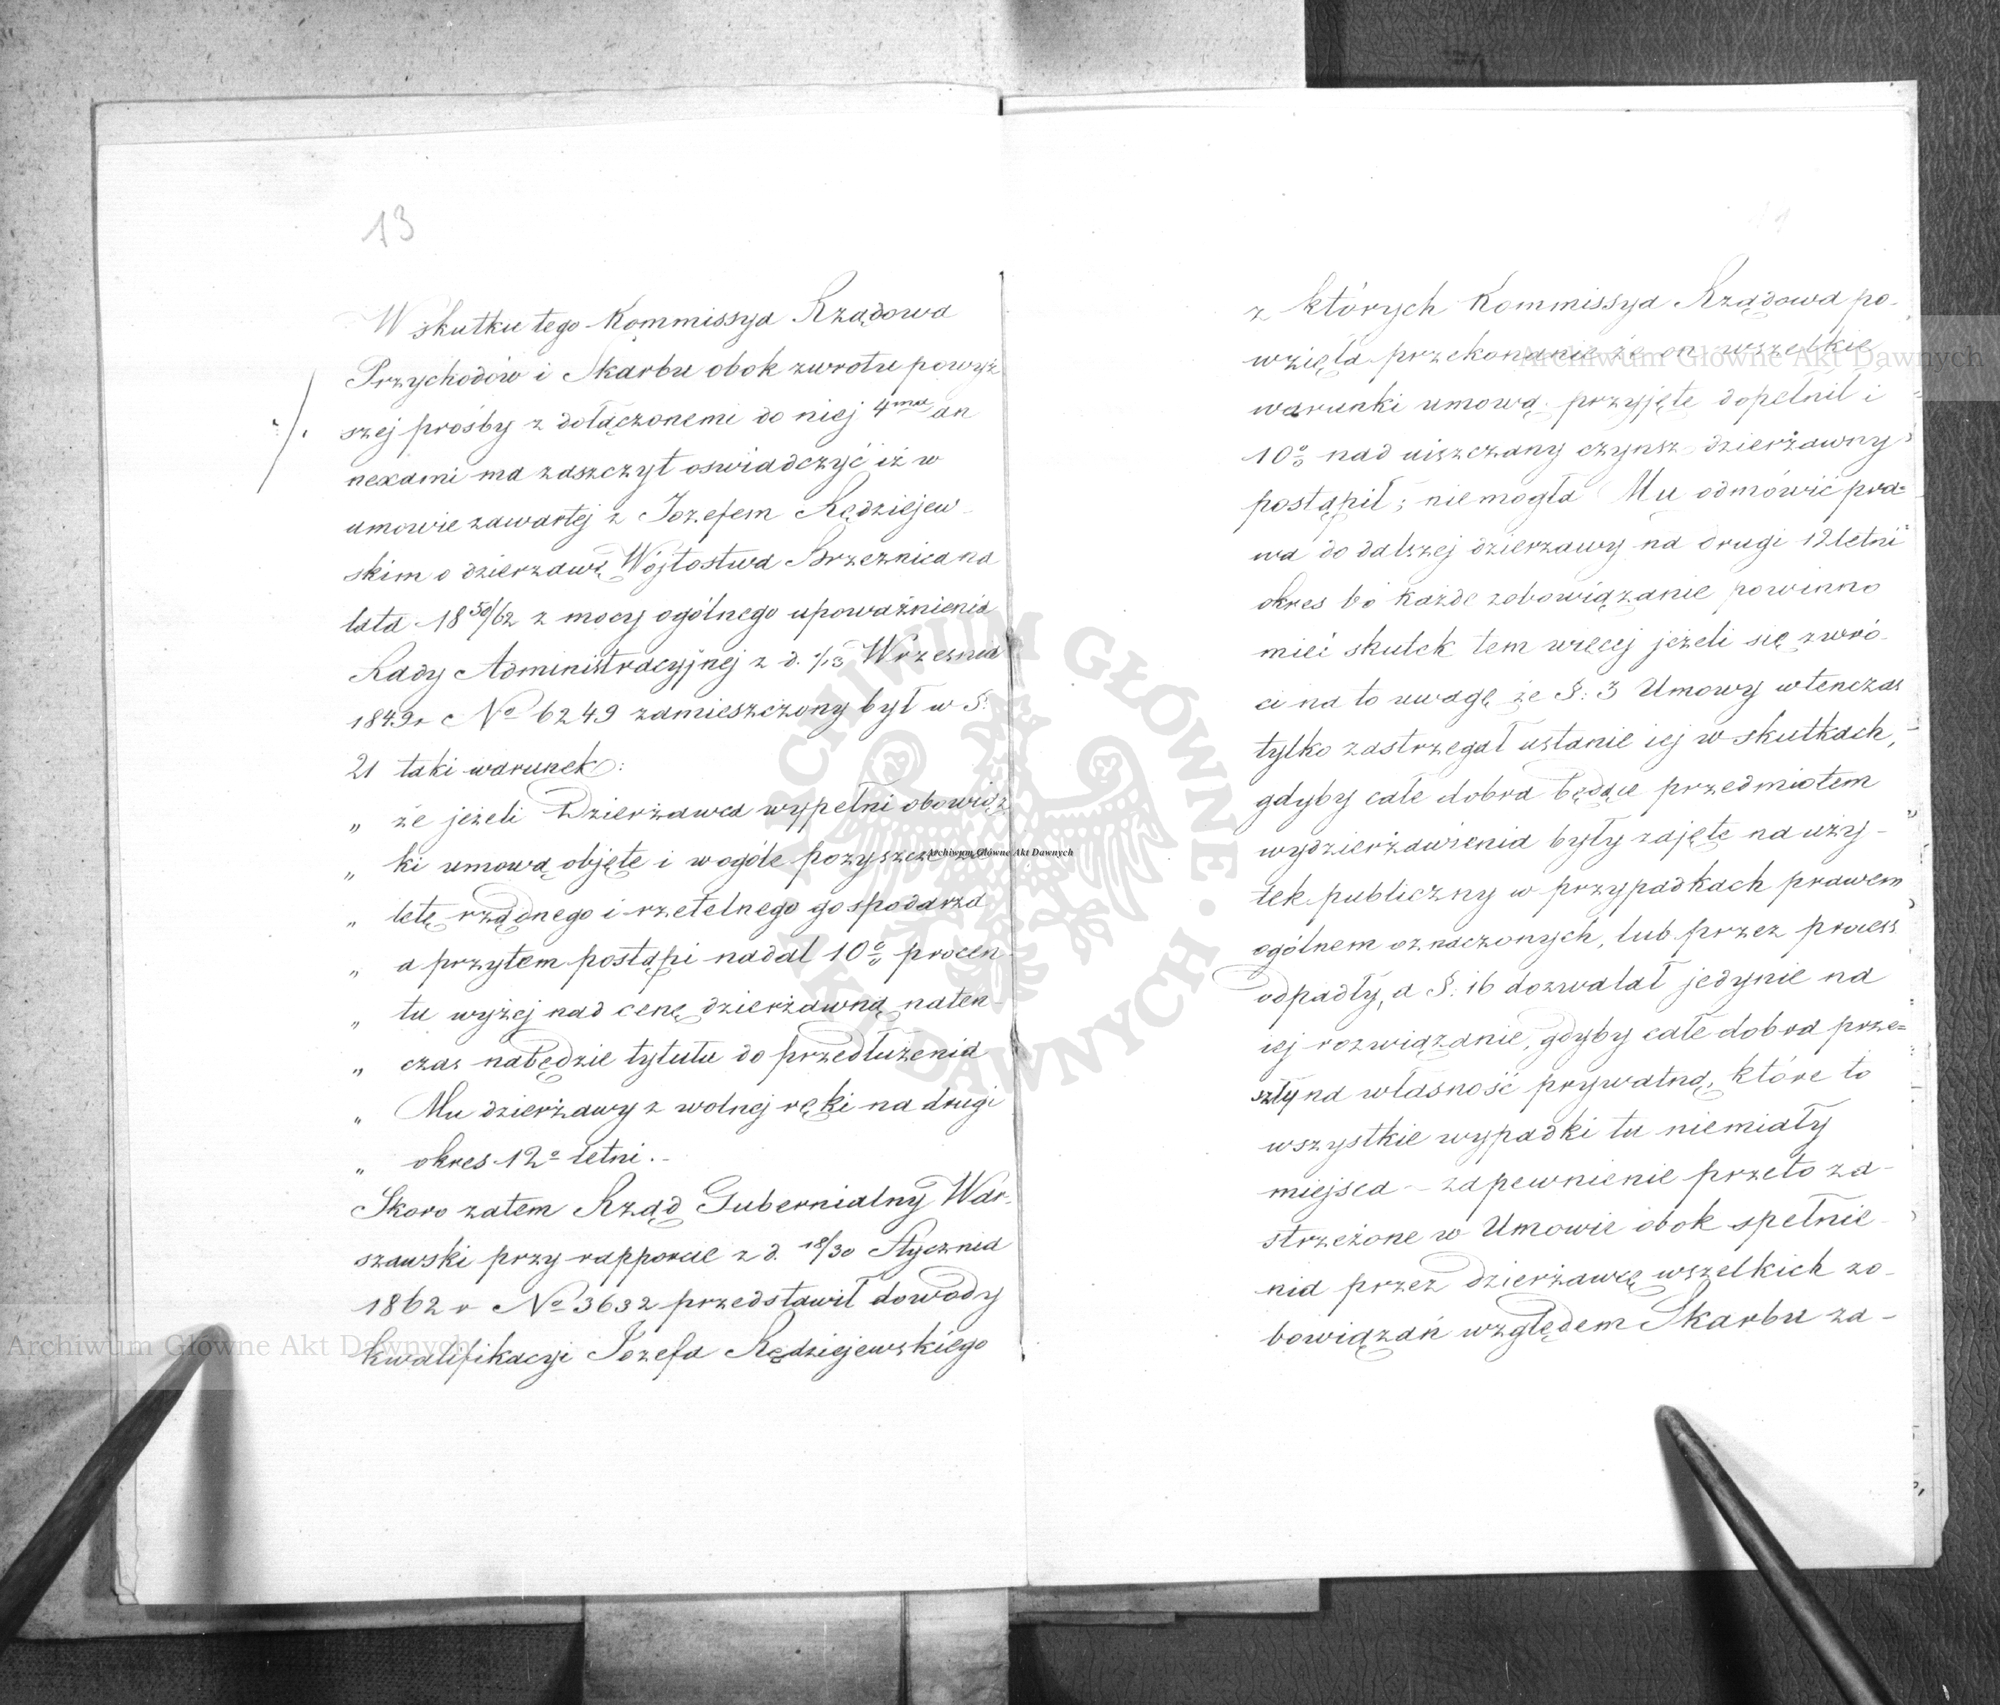 13
W skutku tego Kommissya Rządowa
Przychodów i Skarbu obok zwrotu powyż
szej prośby z dołączonemi do niej 4ma an
nexami ma zaszczyt oswiadczyć iż w
umowie zawartej z Jozefem Rędziejew
skim o dzierzawę Wójtostwa Brzeznica na
lata 1850/62 z mocy ogólnego upoważnienia
Rady Administracyjnej z d. 1/13 Wrzesnia
1849r No 6249 zamieszczony był w §.
21 taki warunek:
„ że jeżeli Dzierżawca wypełni obowiąz
„ ki umową objęte i wogóle pozyszcze
„ letę rządnego i rzetelnego gospodarza
„ a przytem postąpi nadal 10% procen
„ tu wyżej nad cenę dzierżawną naten-
„ czas nabędzie tytułu do przedłużenia
„ Mu dzierżawy z wolnej ręki na drugi
„ okres 12o letni.-
Skoro zatem Rząd Gubernialny War-
szawski przy rapporcie z d. 18/30 Stycznia
1862 r No 3632 przedstawił dowody
kwalifikacyi Jozefa Rędziejewskiego
z których Kommissya Rządowa po-
wzięła przekonanie że on wszelkie
warunki umową przyjęte dopełnił i
10% nad uiszczany czynsz dzierżawny
postąpił; niemogła Mu odmówić pra=
wa do dalszej dzierzawy na drugi 12letni
okres bo każde zobowiązanie powinno
mieć skutek tem więcej jeżeli się zwró-
ci na to uwagę że §: 3 Umowy wtenczas
tylko zastrzegał ustanie iej w skutkach,
gdyby całe dobra będące przedmiotem
wydzierżawienia były zajęte na uży-
tek publiczny w przypadkach prawem
ogólnem oznaczonych, lub przez process
odpadły, a §: 16 dozwalał jedynie na
iej rozwiązanie, gdyby całe dobra prze=
szły na własność prywatną, które to
wszystkie wypadki tu niemiały
miejsca – zapewnienie przeto za-
strzeżone w Umowie obok spełnie-
nia przez dzierżawcę wszelkich zo-
bowiązań względem Skarbu za-
Archiwum Główne Akt Dawnych
Archiwum Główne Akt Dawnych
Archiwum Główne Akt Dawnych
ARCHIWUM GŁÓWNE AKT DAWNYCH